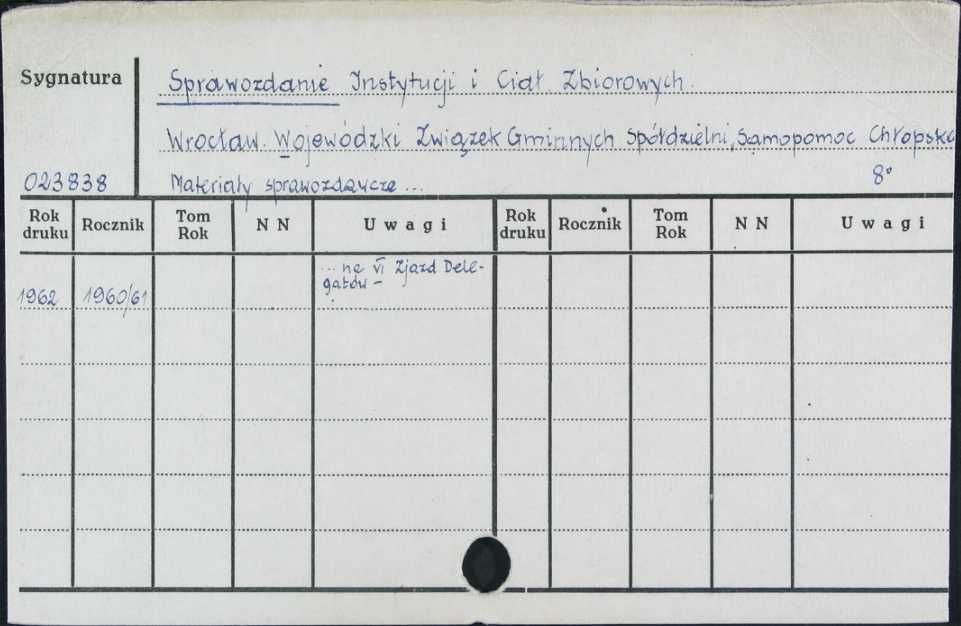 Sygnatura
Sprawozdanie Instytucji i Ciał Zbiorowych.
Wrocław. Wojewódzki Związek Gminnych Spółdzielni „Samopomoc Chłopska
023838 Materiały sprawozdawcze ... 8°
Rok druku Rocznik Tom Rok N N Uwagi Rok druku Rocznik Tom Rok N N Uwagi
1962 1960/61 ... na VI Zjazd Dele-
gatów –